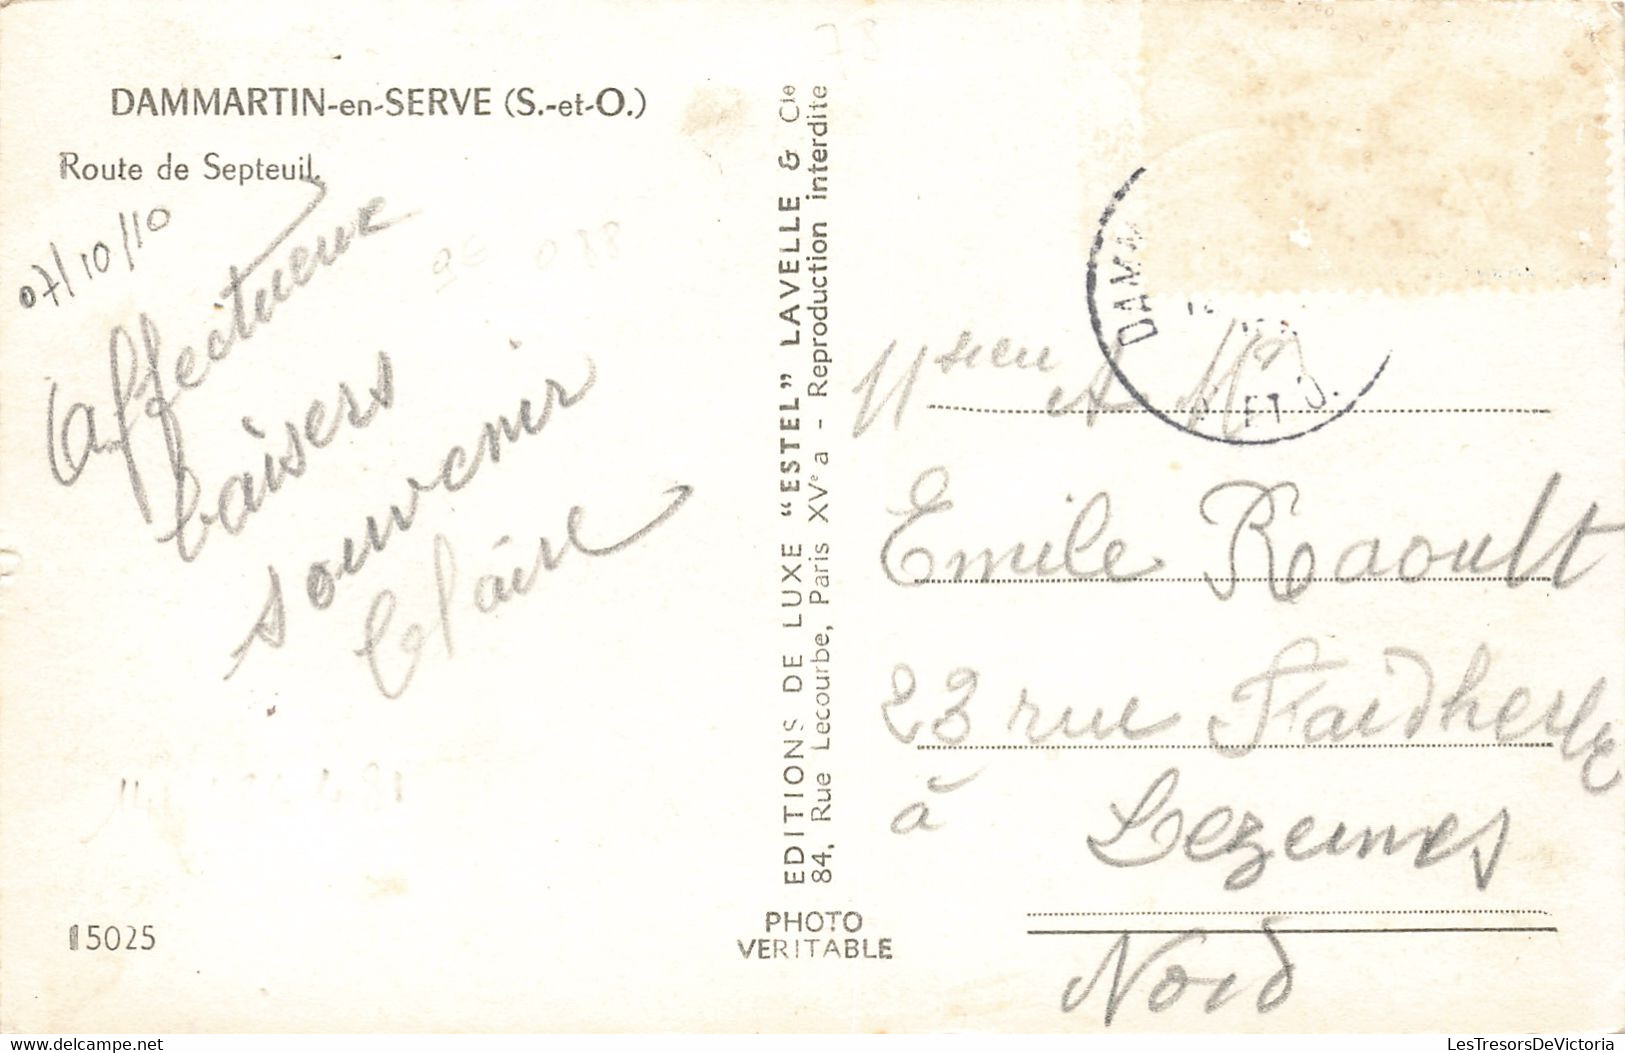 DAMMARTIN-en-SERVE (S.-et-O.)
Route de Septeuil.
07/10/10
Affectueux
baisers
souvenir
Claire
15025
EDITIONS DE LUXE "ESTEL" LAVELLE & Cie
84, Rue Lecourbe, Paris XVe a - Reproduction interdite
PHOTO
VERITABLE
DAMM
ET O.
Msieu et Me
Emile Raoult
23 rue Faidherbe
à Lezennes
Nord
LesTresorsDeVictoria